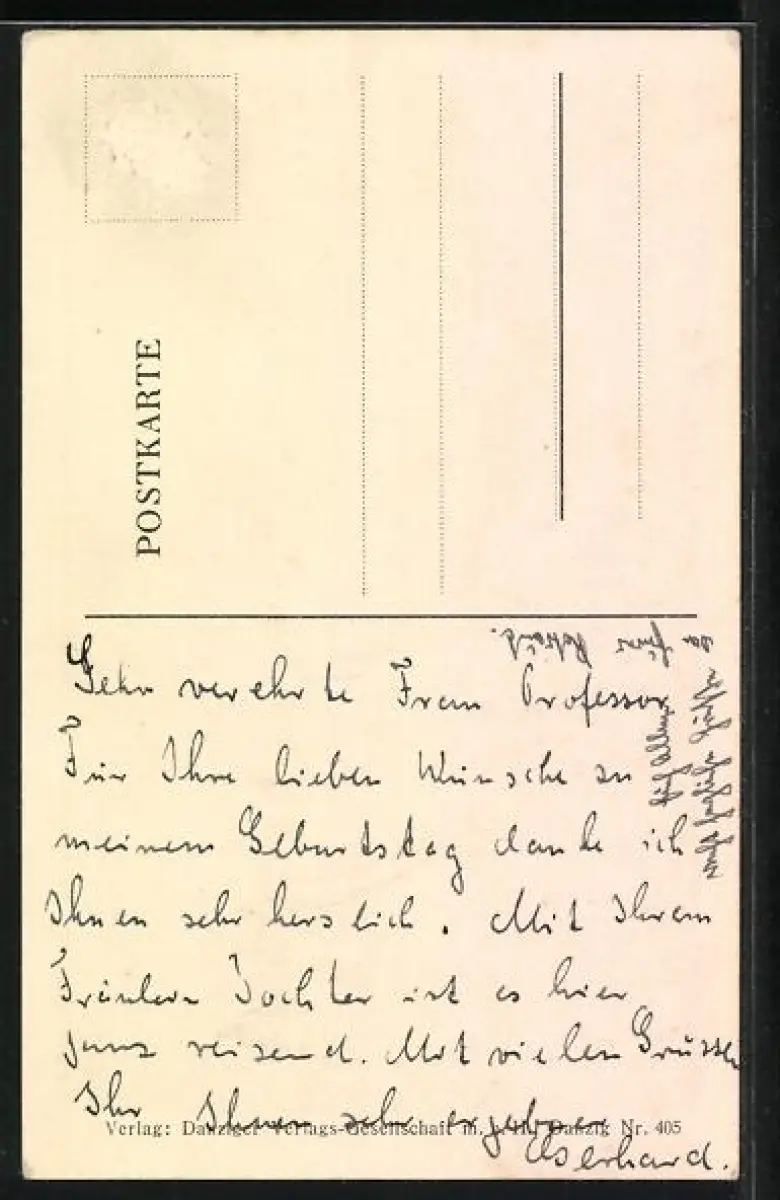 POSTKARTE
Sehr verehrte Frau Professor
Für Ihre lieben Wünsche zu
meinem Geburtstag danke ich
Ihnen sehr herzlich. Mit Ihrem
Fräulein Tochter ist es hier
ganz reizend. Mit vielen Grüssen
Ihr Ihnen sehr ergebener
Eberhard.
Verlag: Danziger Verlags-Gesellschaft m. b. H., Danzig Nr. 405